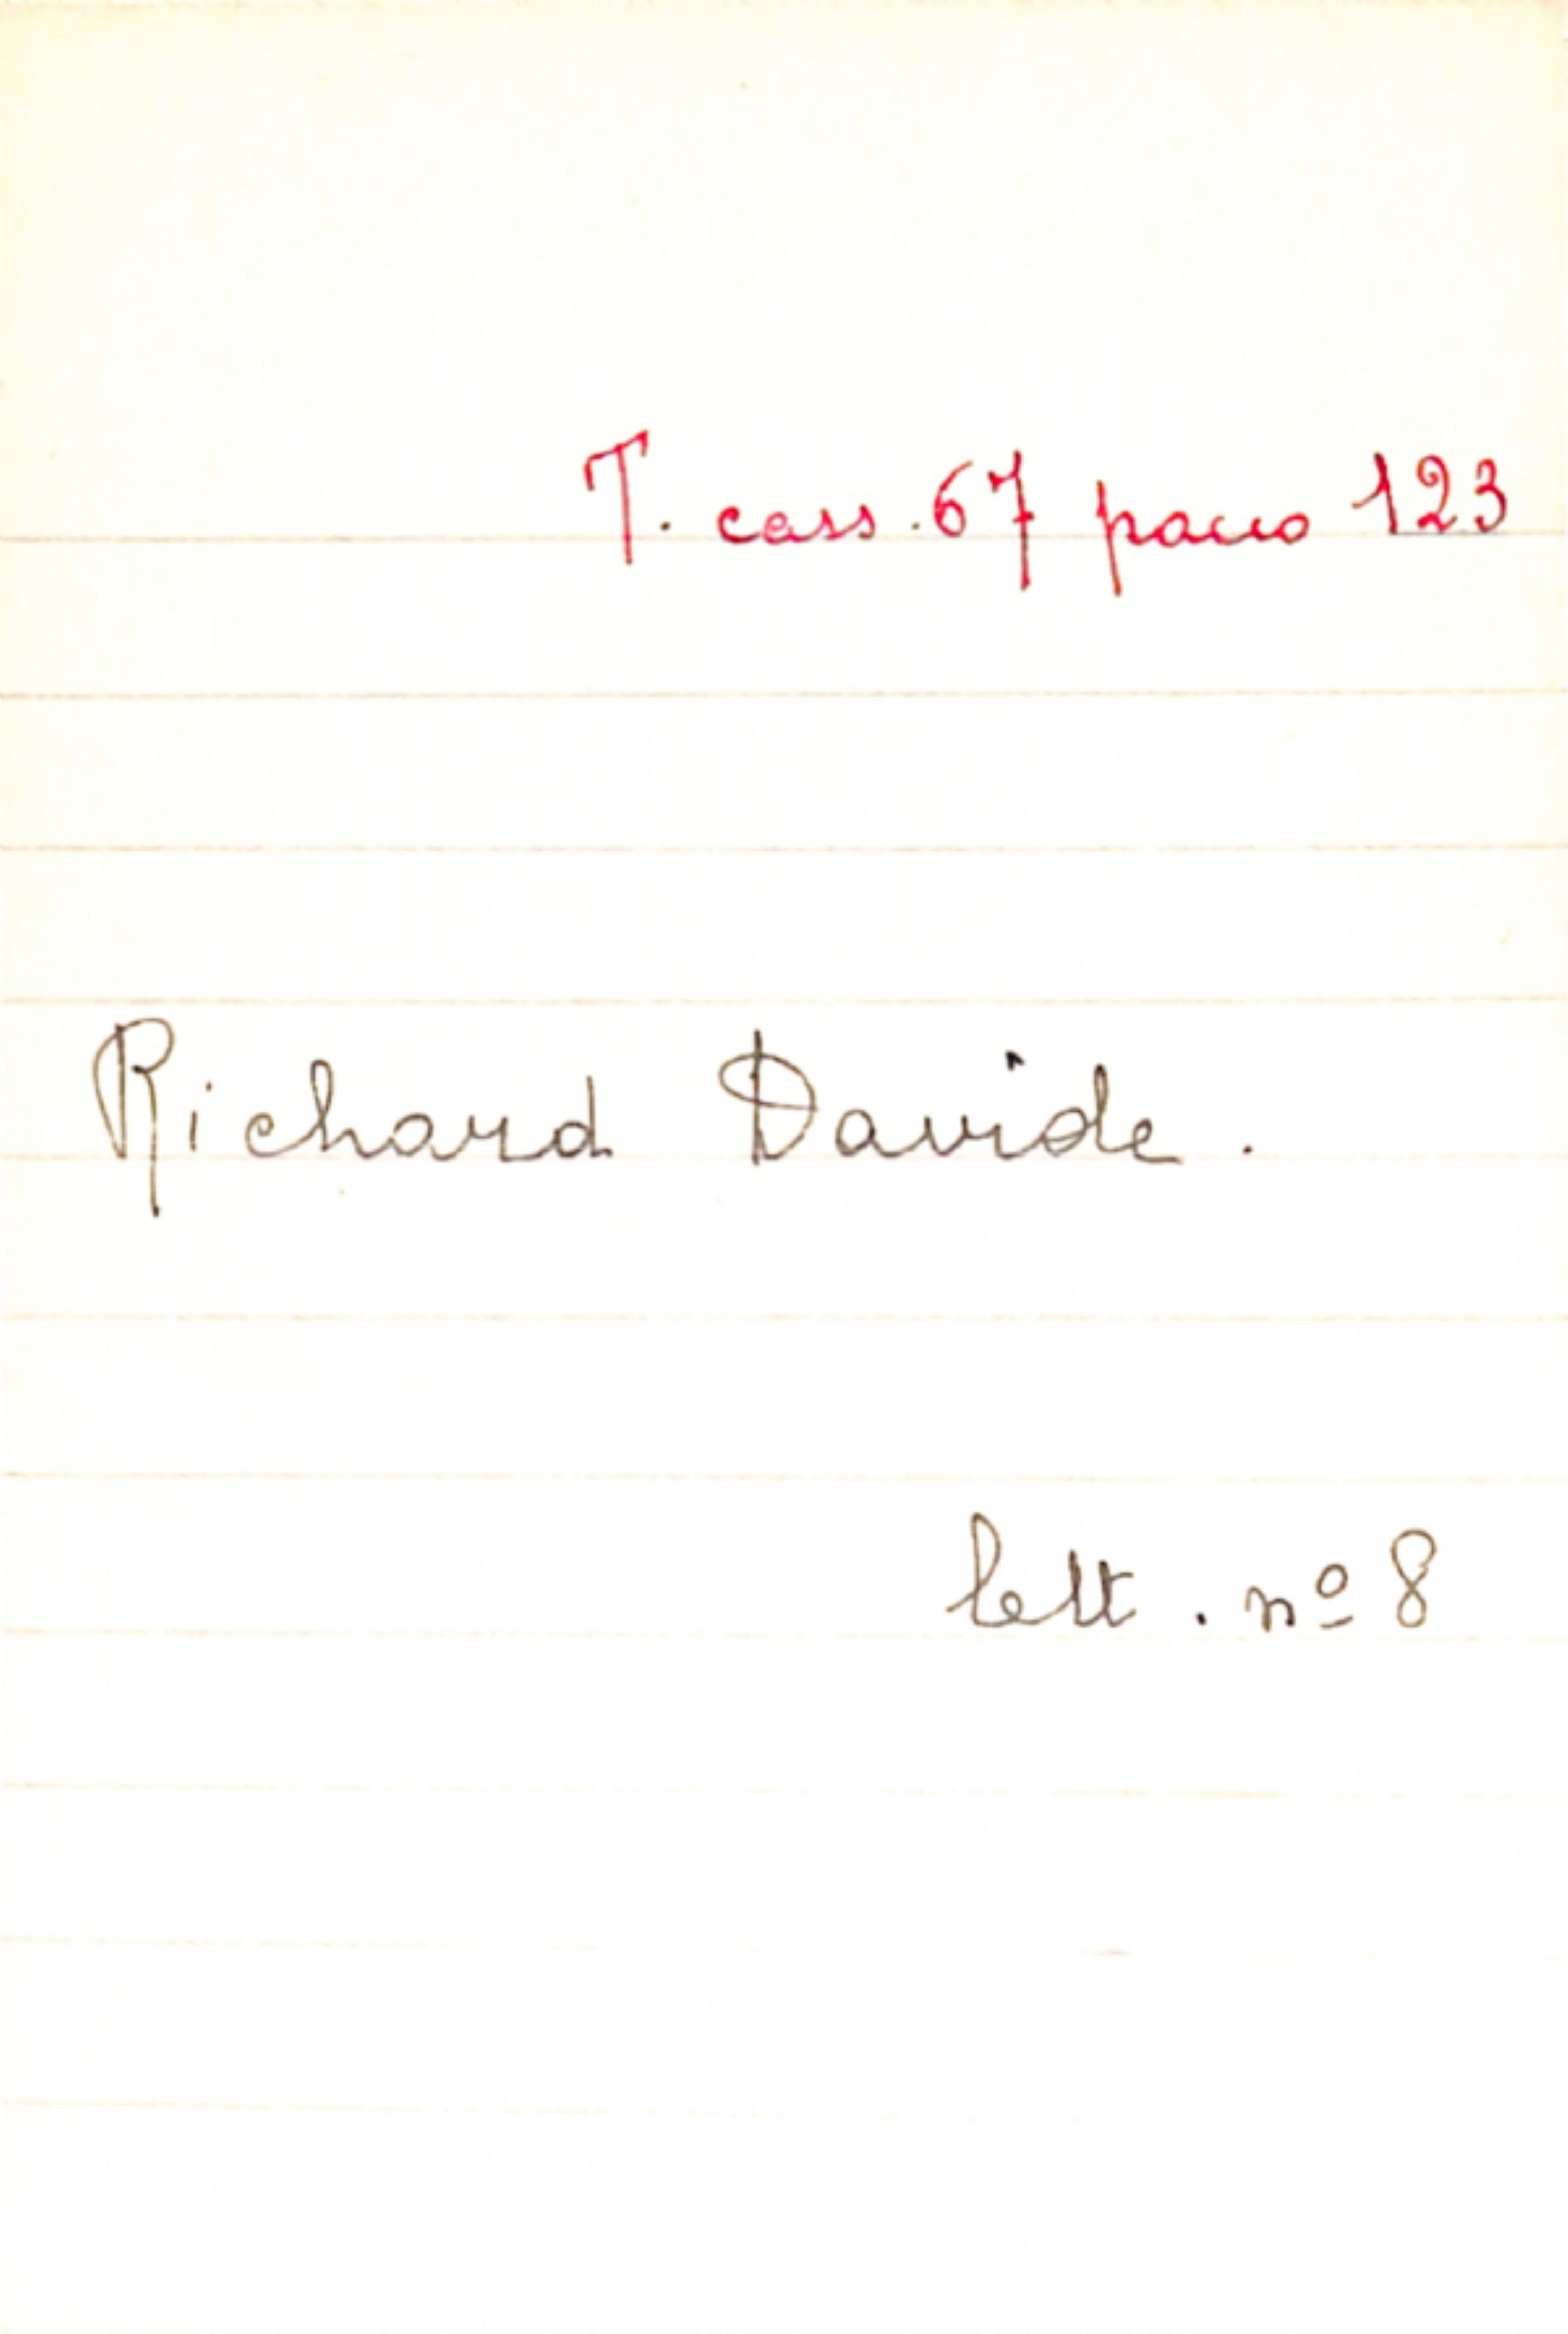 T. cass. 67 pacco 123
Richard Davide.
lett. nº 8